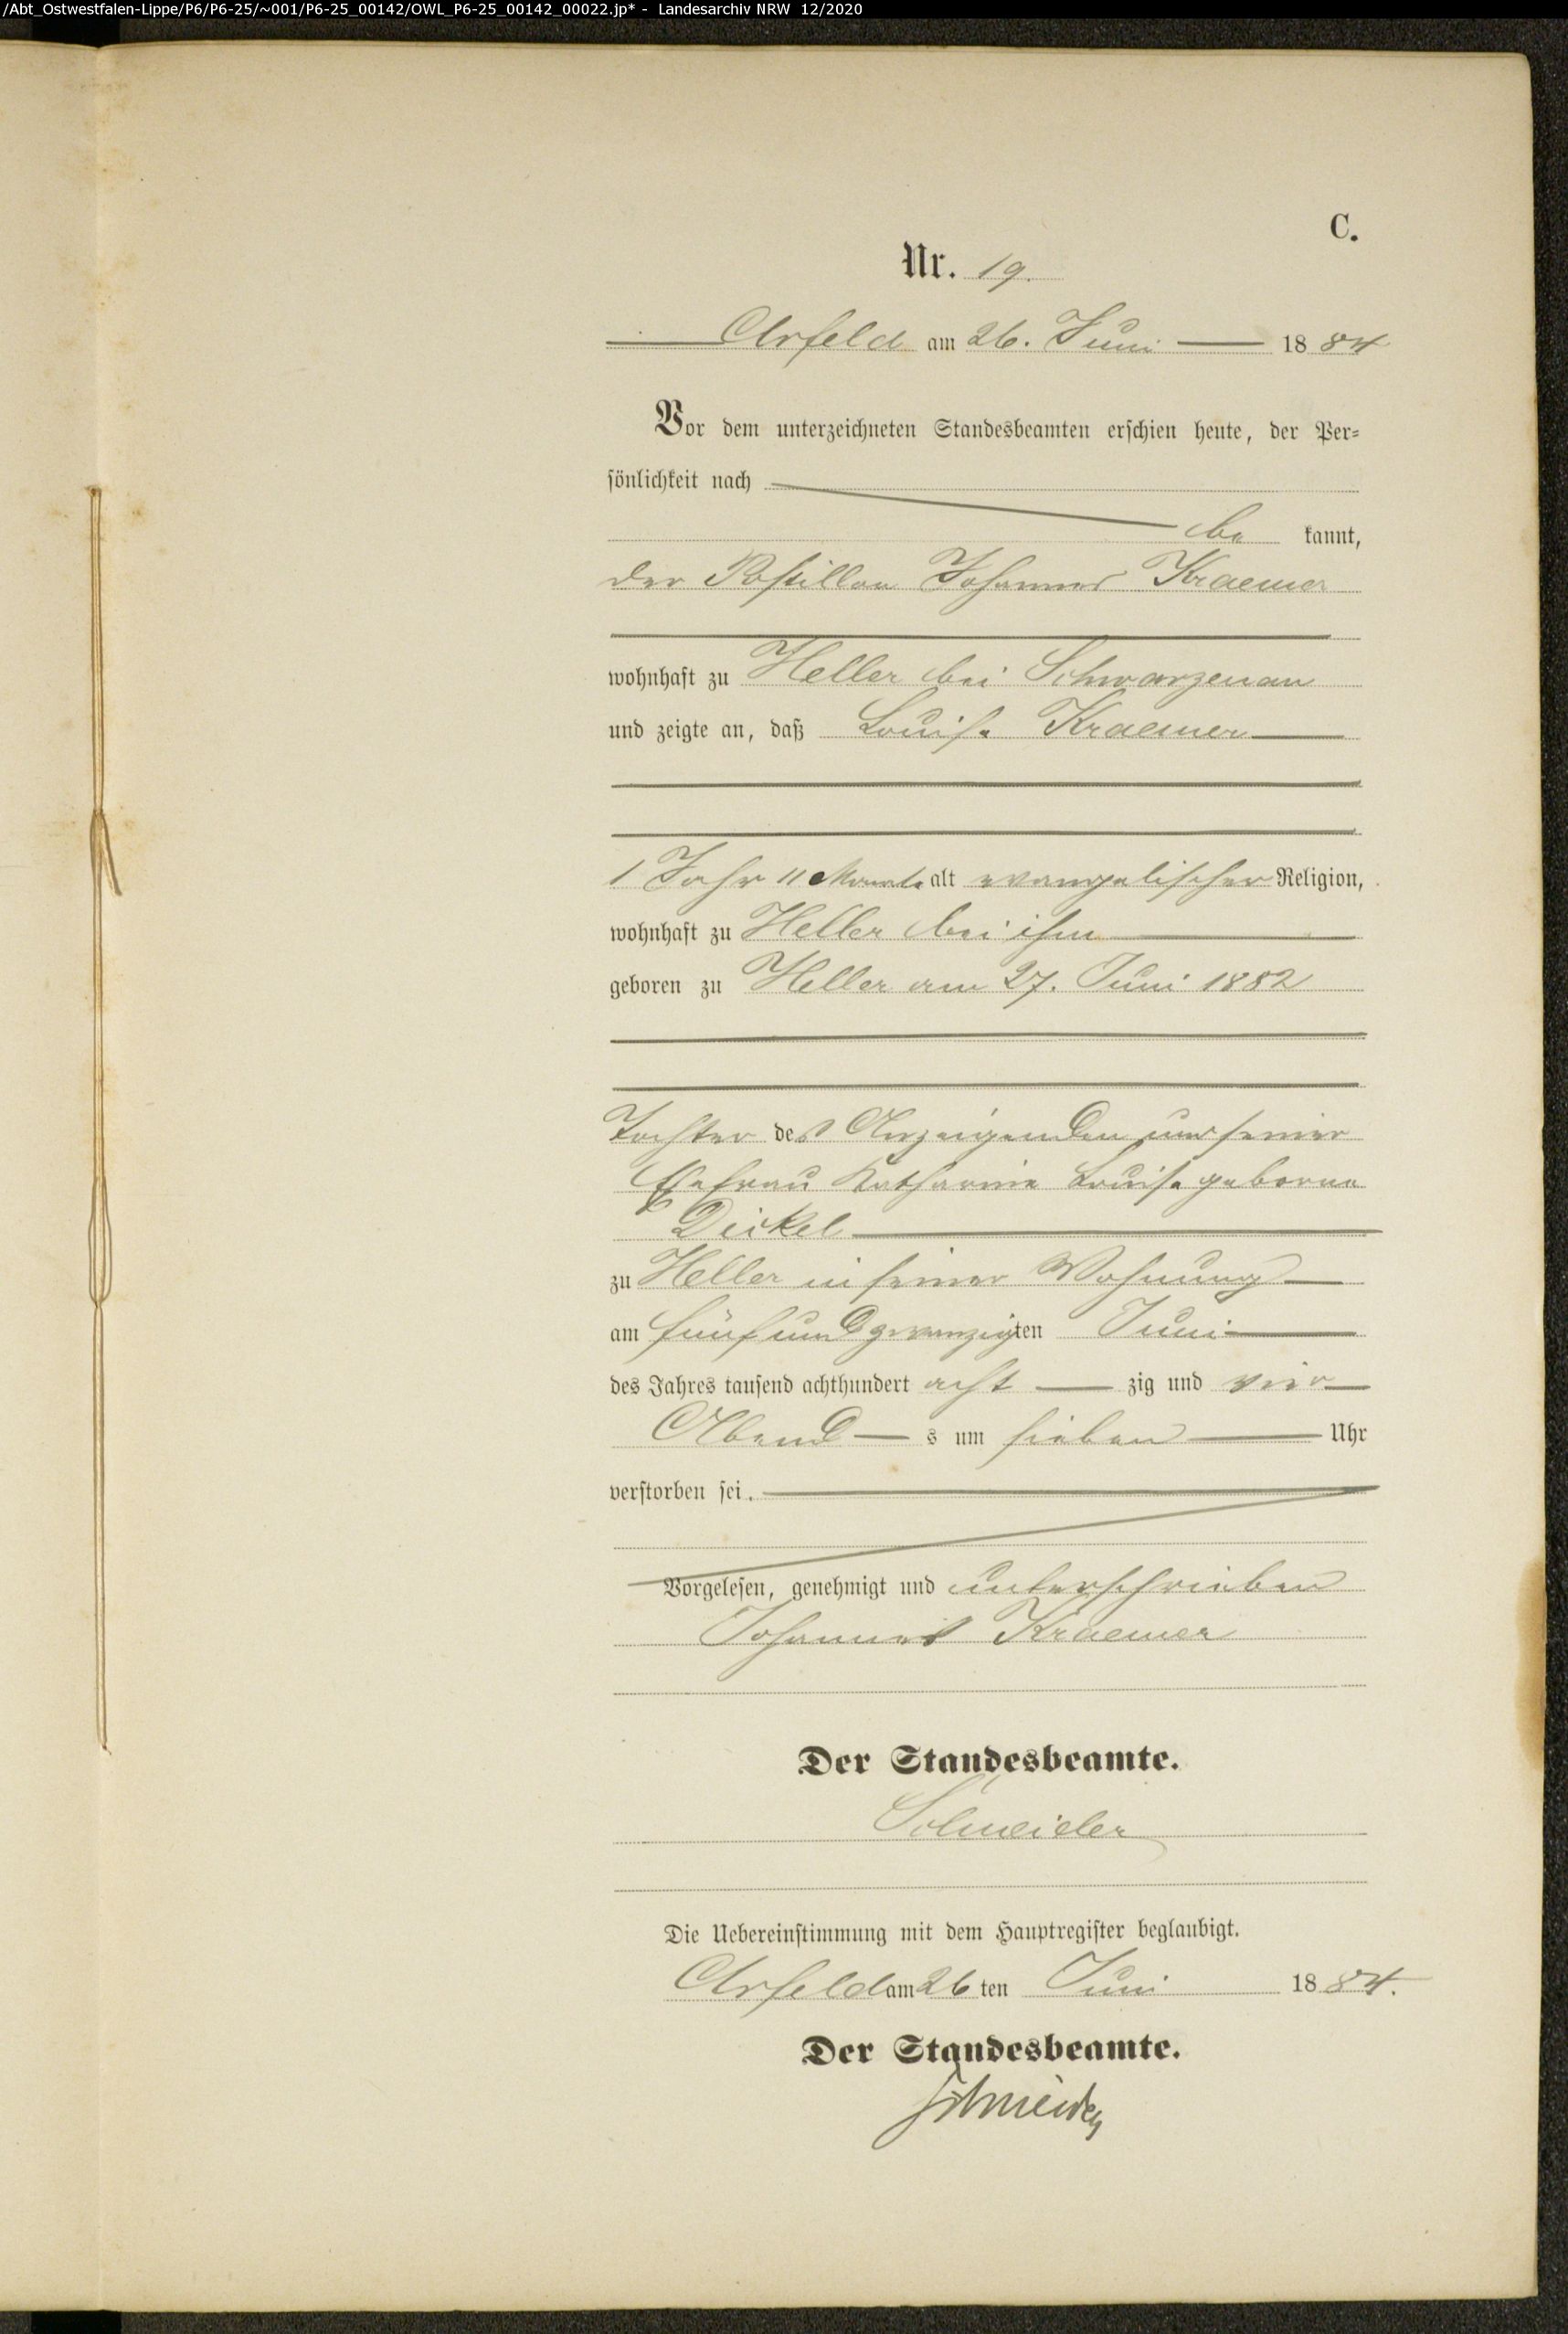 /Abt_Ostwestfalen-Lippe/P6/P6-25/~001/P6-25_00142/OWL_P6-25_00142_00022.jp* - Landesarchiv NRW 12/2020
C.
Nr. 19.
Arfeld am 26. Juni 1884
Vor dem unterzeichneten Standesbeamten erschien heute, der Per-
sönlichkeit nach
be kannt,
der Postillon Johannes Kraemer
wohnhaft zu Heller bei Schwarzenau
und zeigte an, daß Louise Kraemer
1 Jahr 11 Monate alt evangelischer Religion,
wohnhaft zu Heller bei ihm
geboren zu Heller am 27. Juni 1882
Tochter des Anzeigenden und seiner
Ehefrau Katharine Louise geborne
Dickel
zu Heller in seiner Wohnung
am fünfundzwanzigten Juni
des Jahres tausend achthundert acht zig und vier
Abend s um sieben Uhr
verstorben sei.
Vorgelesen, genehmigt und unterschrieben
Johannes Kraemer
Der Standesbeamte.
Schneider
Die Uebereinstimmung mit dem Hauptregister beglaubigt.
Arfeld am 26 ten Juni 1884.
Der Standesbeamte.
Schneider